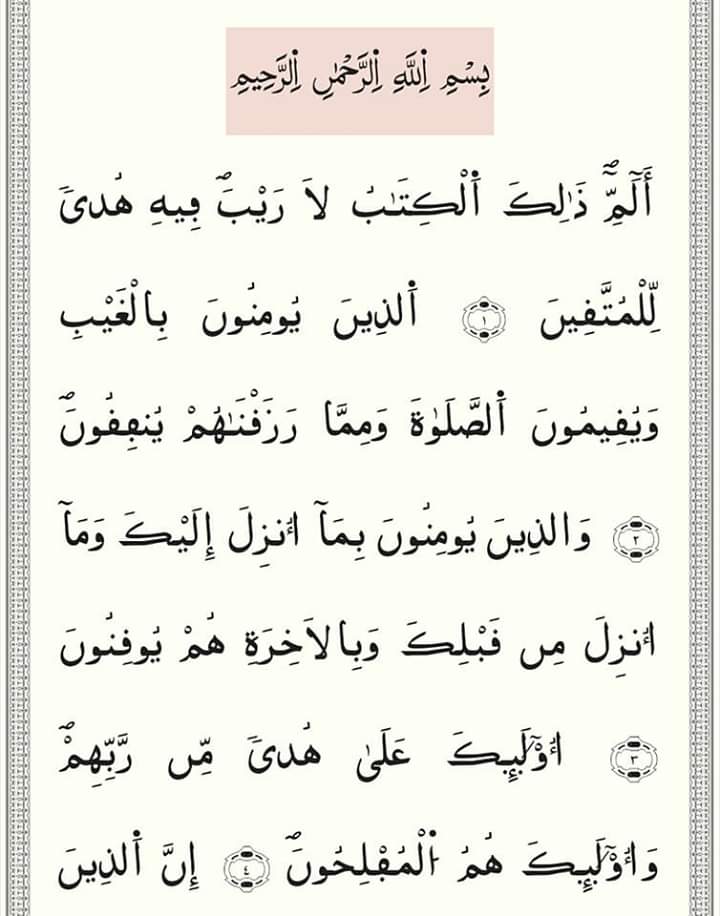 بِسْمِ اِ۬للَّهِ اِ۬لرَّحْمَٰنِ اِ۬لرَّحِيمِ
أَلَٓمِّٓۖ ذَٰلِكَ اَ۬لْكِتَٰبُ لَا رَيْبَۖ فِيهِ هُدىٗ
لِّلْمُتَّفِينَ ١ اَ۬لذِينَ يُومِنُونَ بِالْغَيْبِ
وَيُفِيمُونَ اَ۬لصَّلَوٰةَ وَمِمَّا رَزَفْنَٰهُمْ يُنفِفُونَۖ
٢ وَالذِينَ يُومِنُونَ بِمَآ أُنزِلَ إِلَيْكَ وَمَآ
أُنزِلَ مِن فَبْلِكَ وَبِالَاخِرَةِ هُمْ يُوفِنُونَ
٣ أُوْلَٰٓئِكَ عَلَىٰ هُدىٗ مِّن رَّبِّهِمْۖ
وَأُوْلَٰٓئِكَ هُمُ اُ۬لْمُفْلِحُونَۖ ٤ إِنَّ اَ۬لذِينَ